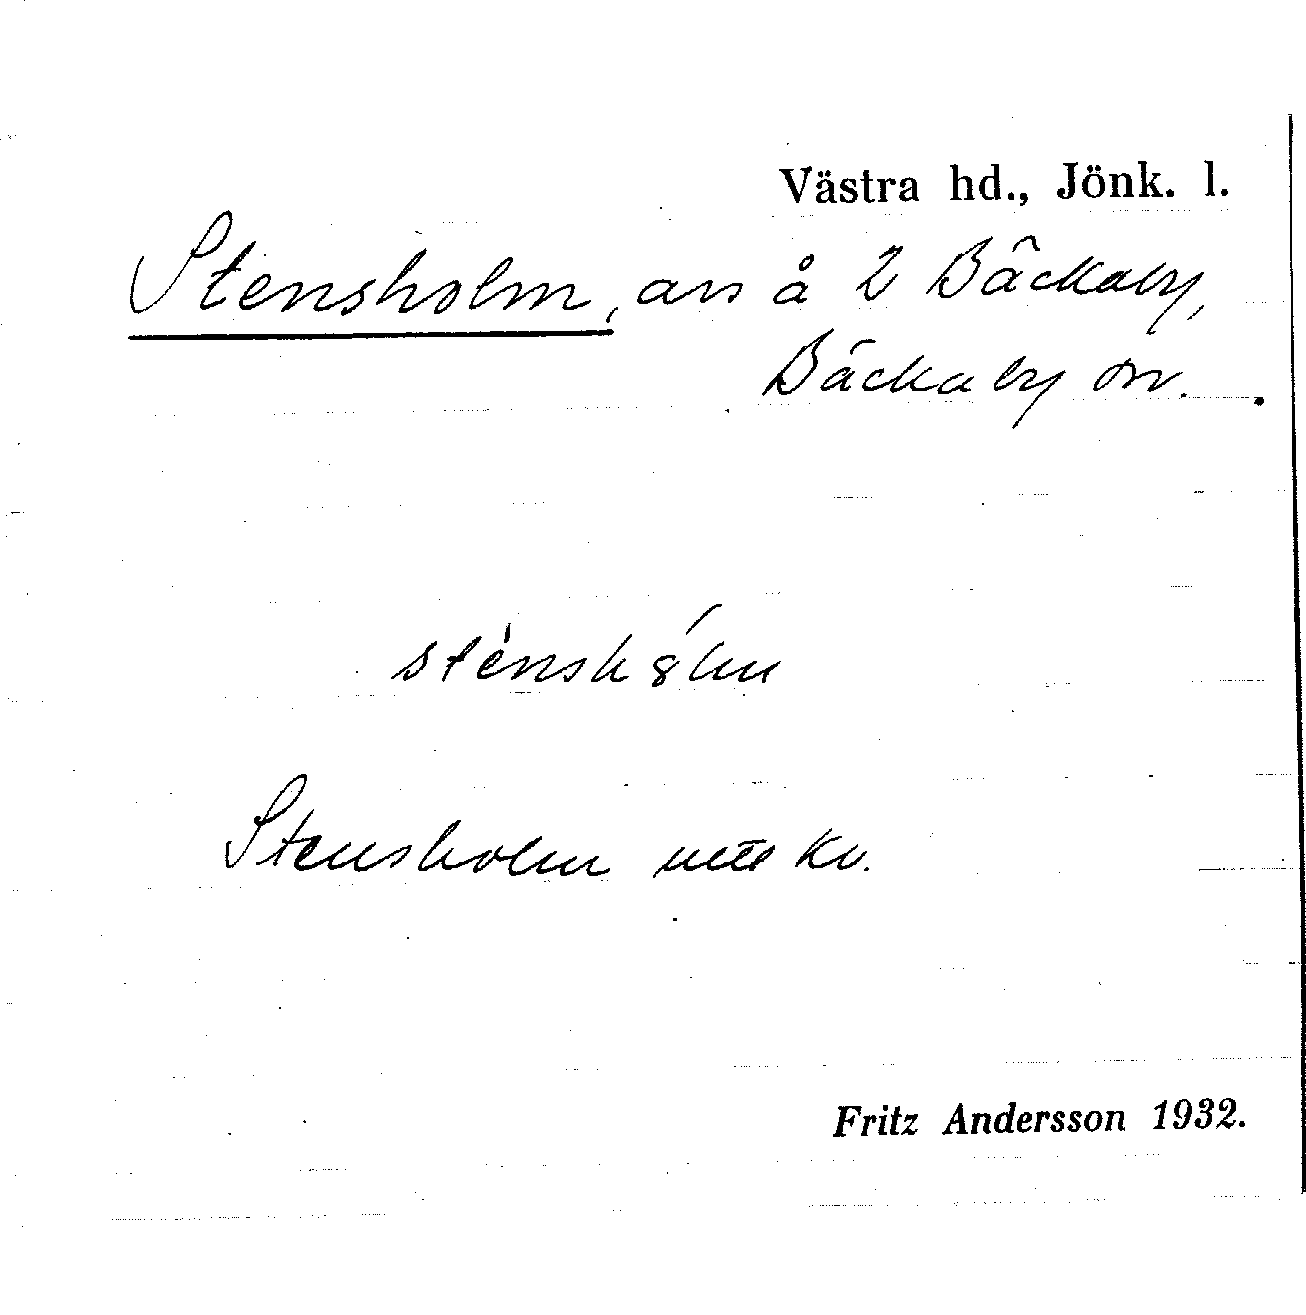 Västra hd., Jönk. l.
Stensholm, avs å 2 Bäckaby,
Bäckaby sn.
Stensholm
Fritz Andersson 1932.